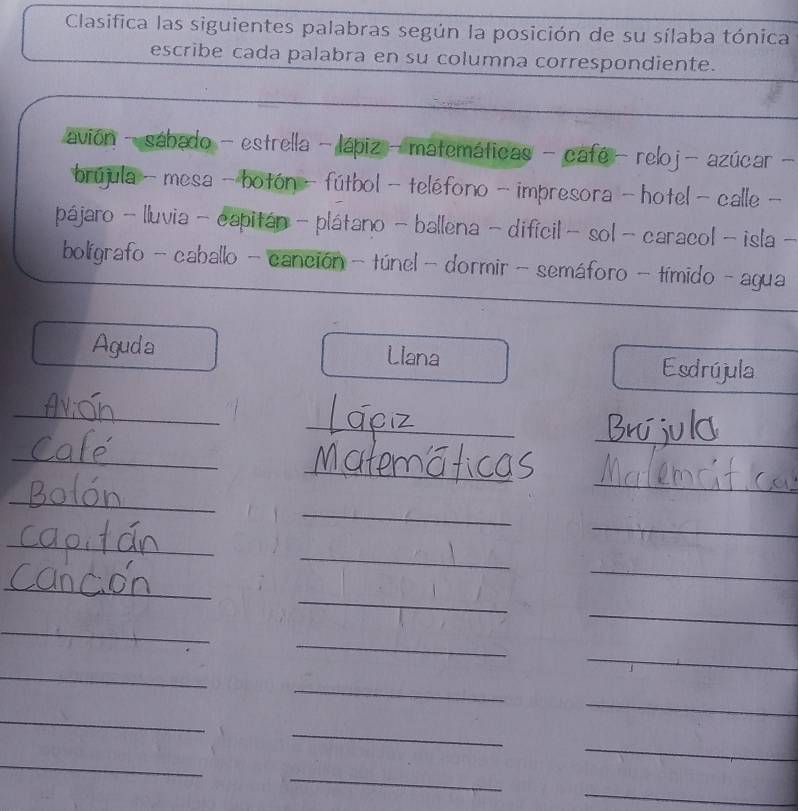 Clasifica las siguientes palabras según la posición de su sílaba tónica
escribe cada palabra en su columna correspondiente.
avión - sábado - estrella - lápiz - matemáticas - café - reloj - azúcar -
brújula - mesa - botón - fútbol - teléfono - impresora - hotel - calle -
pájaro - lluvia - capitán - plátano - ballena - difícil - sol - caracol - isla -
bolígrafo - caballo - canción - túnel - dormir - semáforo - tímido - agua
Aguda
Llana
Esdrújula
Avión
Lápiz
Brújula
Café
Matemáticas
Matemáticas
Botón
capitán
canción